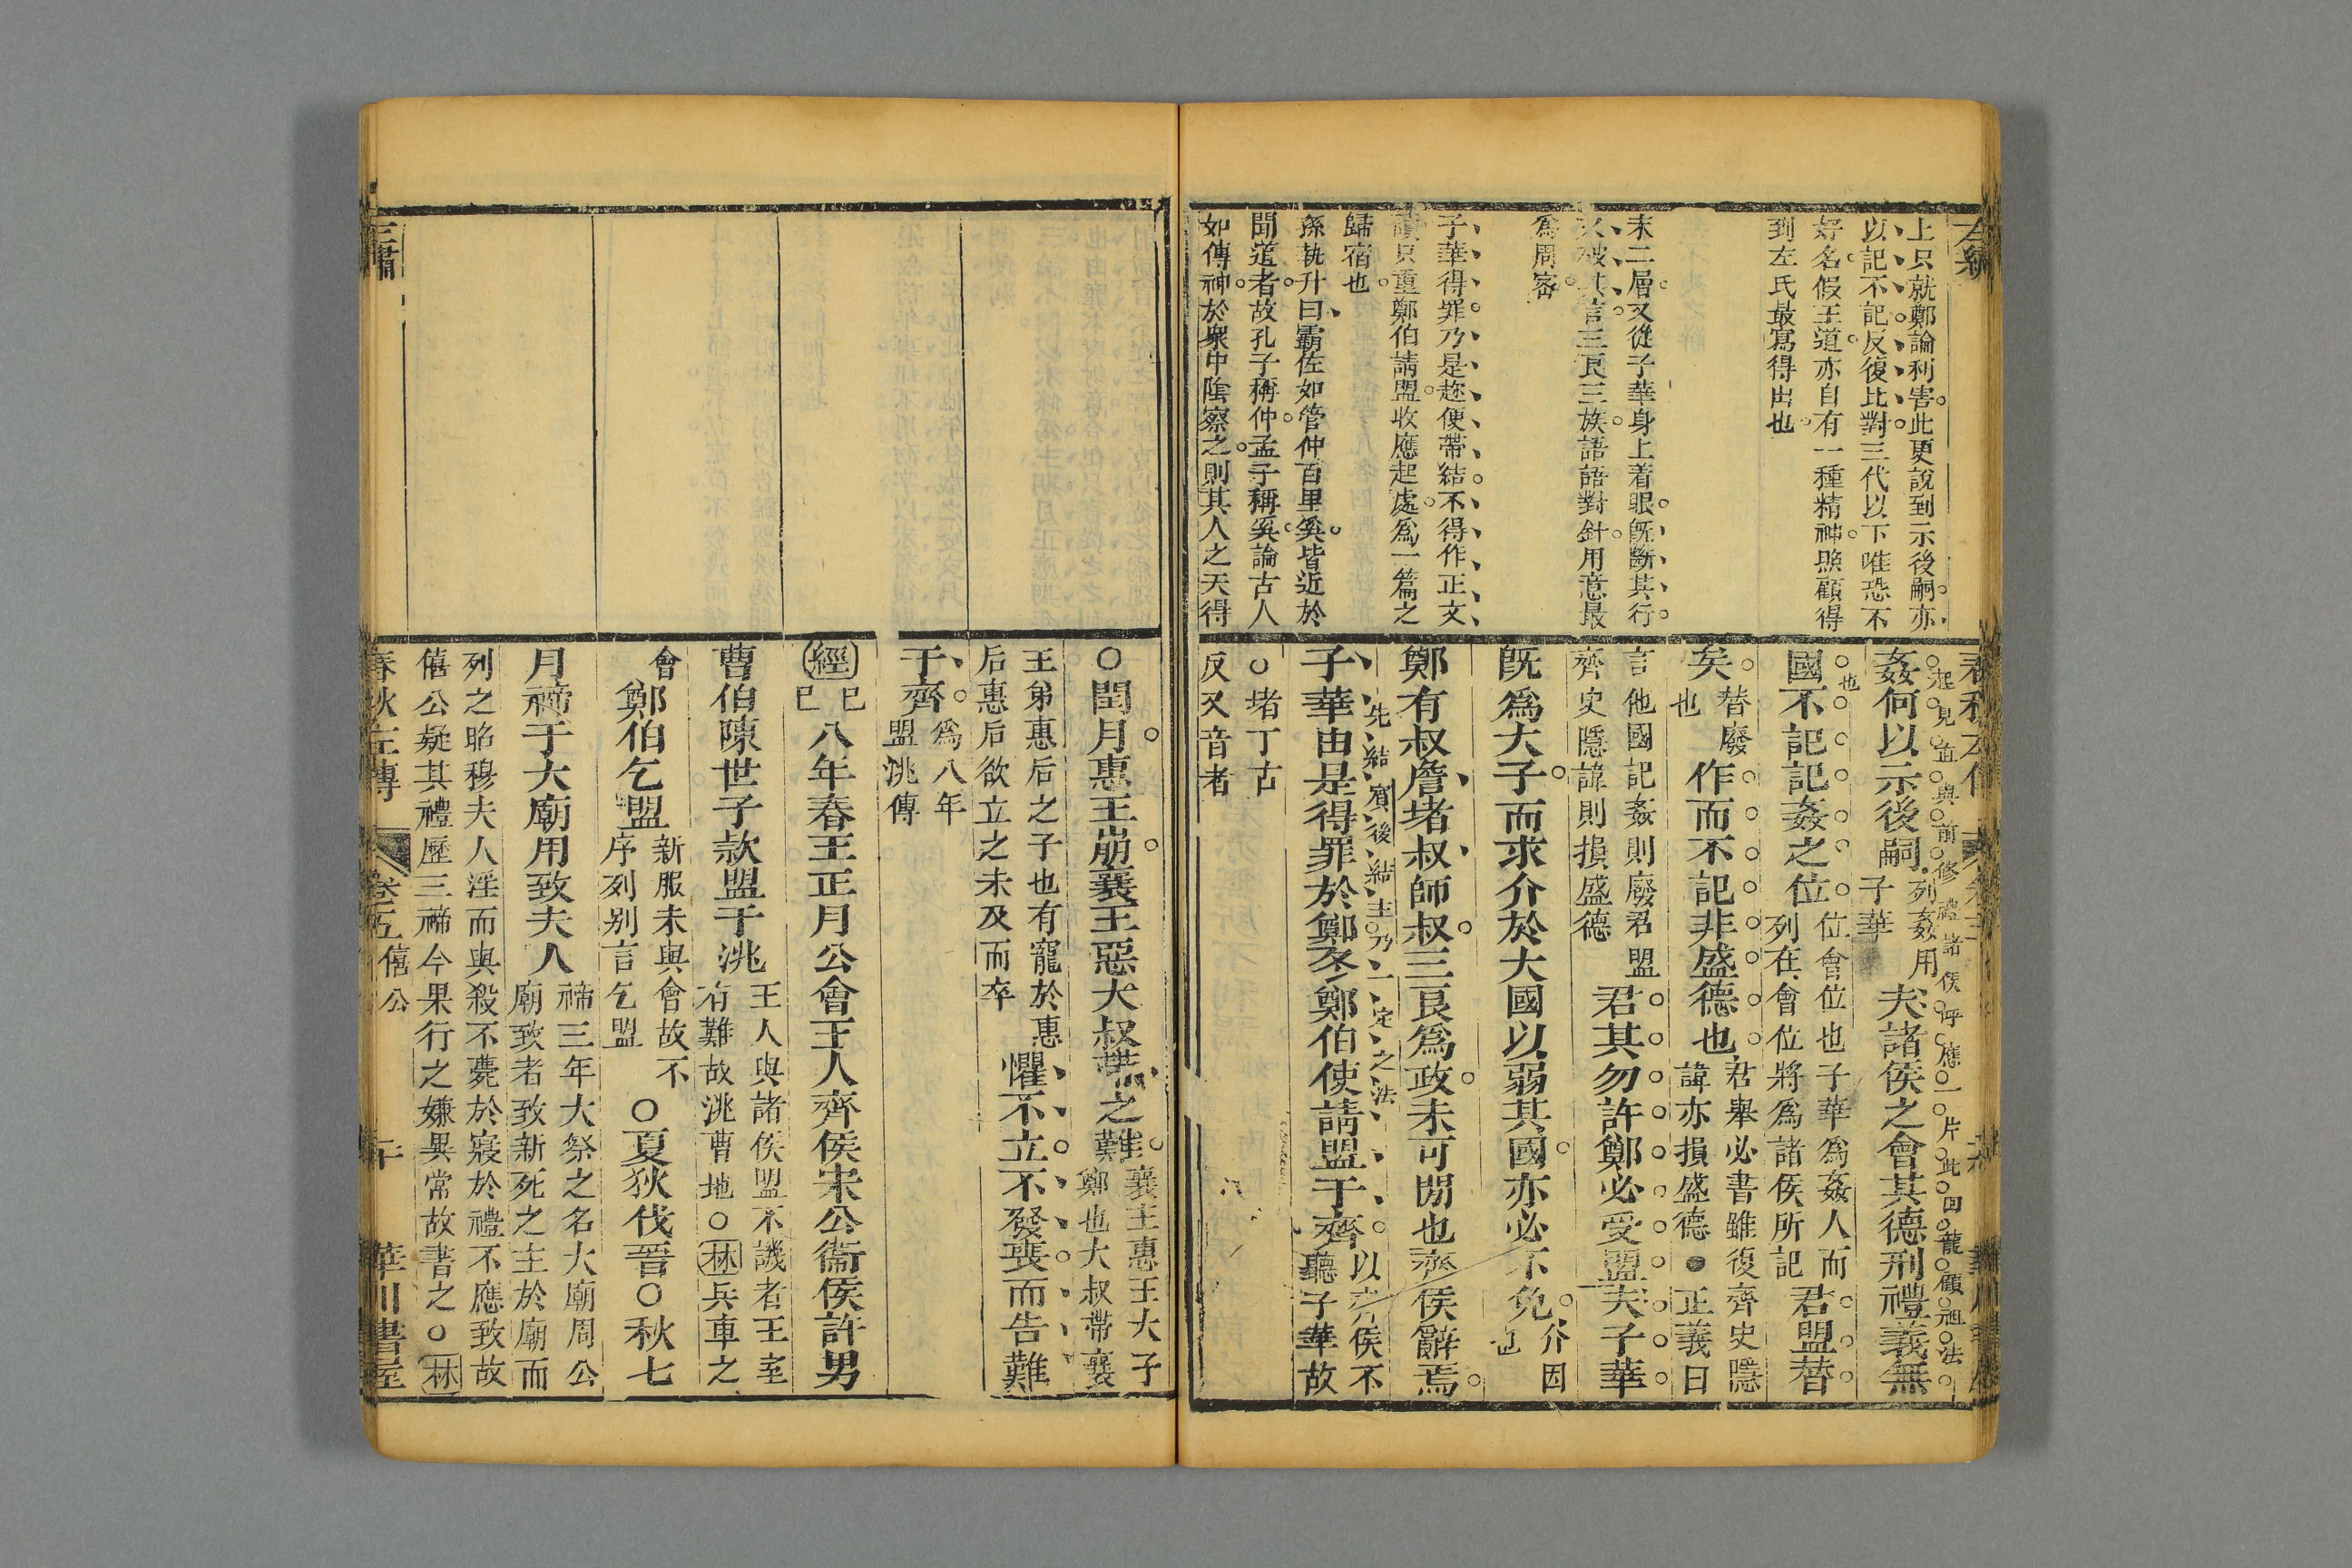 上只就鄭論利害此更說到示後嗣亦
以記不記反復比對三代以下唯恐不
好名假王道亦自有一種精神照顧得
到左氏最寫得出也
末二層又從子華身上着眼既斷其行
又破其言三良三族語語對針用意最
為周密
子華得罪乃是趂便帶結不得作正文
讀只重鄭伯請盟收應起處為一篇之
歸宿也
孫執升曰霸佐如管仲百里奚皆近於
聞道者故孔子稱仲孟子稱奚論古人
如傳神於衆中陰察之則其人之天得
起見血與前修禮諸侯呼應一片此回龍顧祖法也
姦何以示後嗣列姦用子華夫諸侯之會其德刑禮義無
國不記記姦之位位會位也子華為姦人而列在會位將為諸侯所記君盟替
矣替廢也作而不記非盛德也君舉必書雖復齊史隱諱亦損盛德●正義曰
言他國記姦則廢君盟齊史隱諱則損盛德君其勿許鄭必受盟夫子華
既為大子而求介於大國以弱其國亦必不免介因也
鄭有叔詹堵叔師叔三良為政未可閒也齊侯辭焉
先結賓後結主乃一定之法
子華由是得罪於鄭冬鄭伯使請盟于齊以齊侯不聽子華故
○堵丁古反又音者
○閏月惠王崩襄王惡大叔帶之難襄王惠王大子鄭也大叔帶襄
王弟惠后之子也有寵於惠后惠后欲立之未及而卒懼不立不發喪而告難
于齊為八年盟洮傳
經己巳八年春王正月公會王人齊侯宋公衞侯許男
曹伯陳世子款盟于洮王人與諸侯盟不譏者王室有難故洮曹地○林兵車之
會鄭伯乞盟新服未與會故不序列别言乞盟○夏狄伐晉○秋七
月禘于大廟用致夫人禘三年大祭之名大廟周公廟致者致新死之主於廟而
列之昭穆夫人淫而與殺不薨於寢於禮不應致故僖公疑其禮歷三禘今果行之嫌異常故書之○林
春秋左傳 卷五 僖公 二十 華川書屋